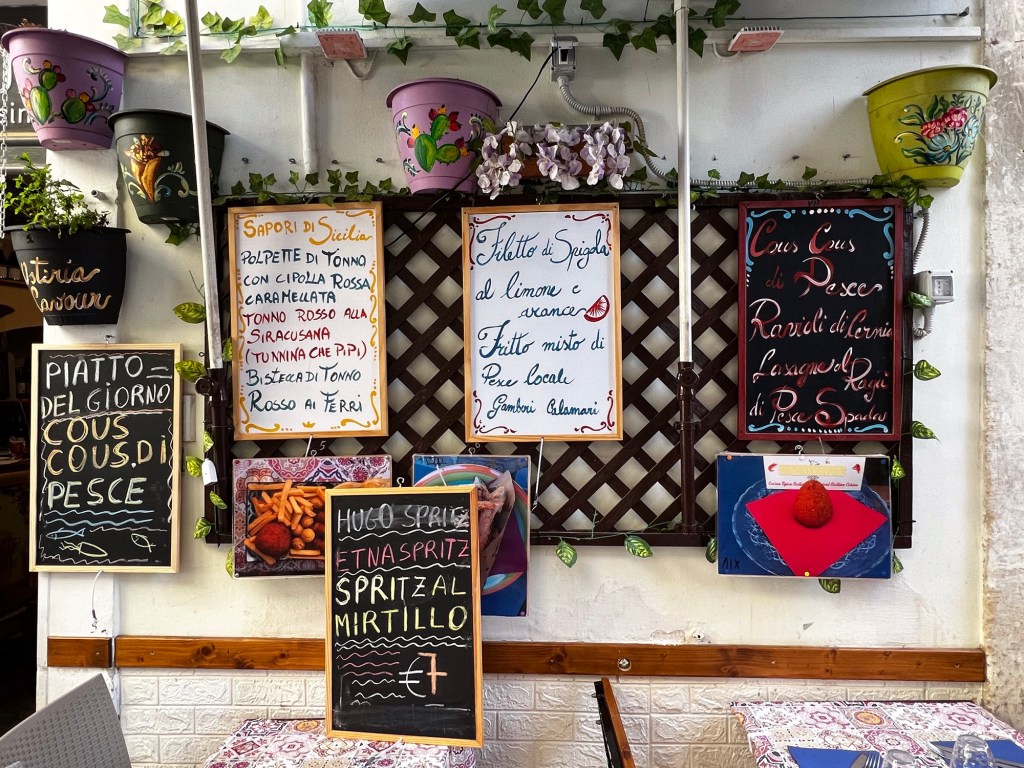 Osteria
Savour
PIATTO
DEL GIORNO
COUS
COUS.DI
PESCE
SAPORI DI Sicilia
POLPETTE DI TONNO
CON CIPOLLA ROSSA
CARAMELLATA
TONNO ROSSO ALLA
SIRACUSANA
(TUNNINA CHE PIPI)
BISTECCA DI TONNO
ROSSO AI FERRI
Filetto di Spigola
al limone e
arance
Fritto misto di
Pesce locale
Gamberi Calamari
Cous Cous
di Pesce
Ravioli di Cernia
Lasagne al Ragù
di Pesce Spada
HUGO SPRITZ
ETNA SPRITZ
SPRITZ AL
MIRTILLO
€7